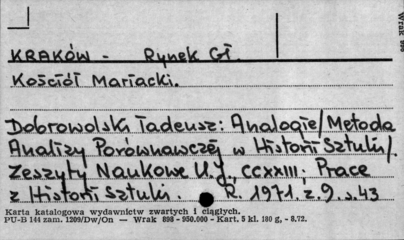 KRAKÓW - Rynek Gł.
Kościół Mariacki.
Dobrowolski Tadeusz: Analogie/Metoda
Analizy Porównawczej w Historii Sztuki/.
Zeszyty Naukowe U.J., CCXXIII; Prace
z Historii Sztuki. R. 1971. z. 9. s. 43
Karta katalogowa wydawnictw zwartych i ciągłych.
PU-B 144 zam. 1209/Dw/On — Wrak 898 - 950.000 - Kart. 5 kl. 180 g, - 8.72.